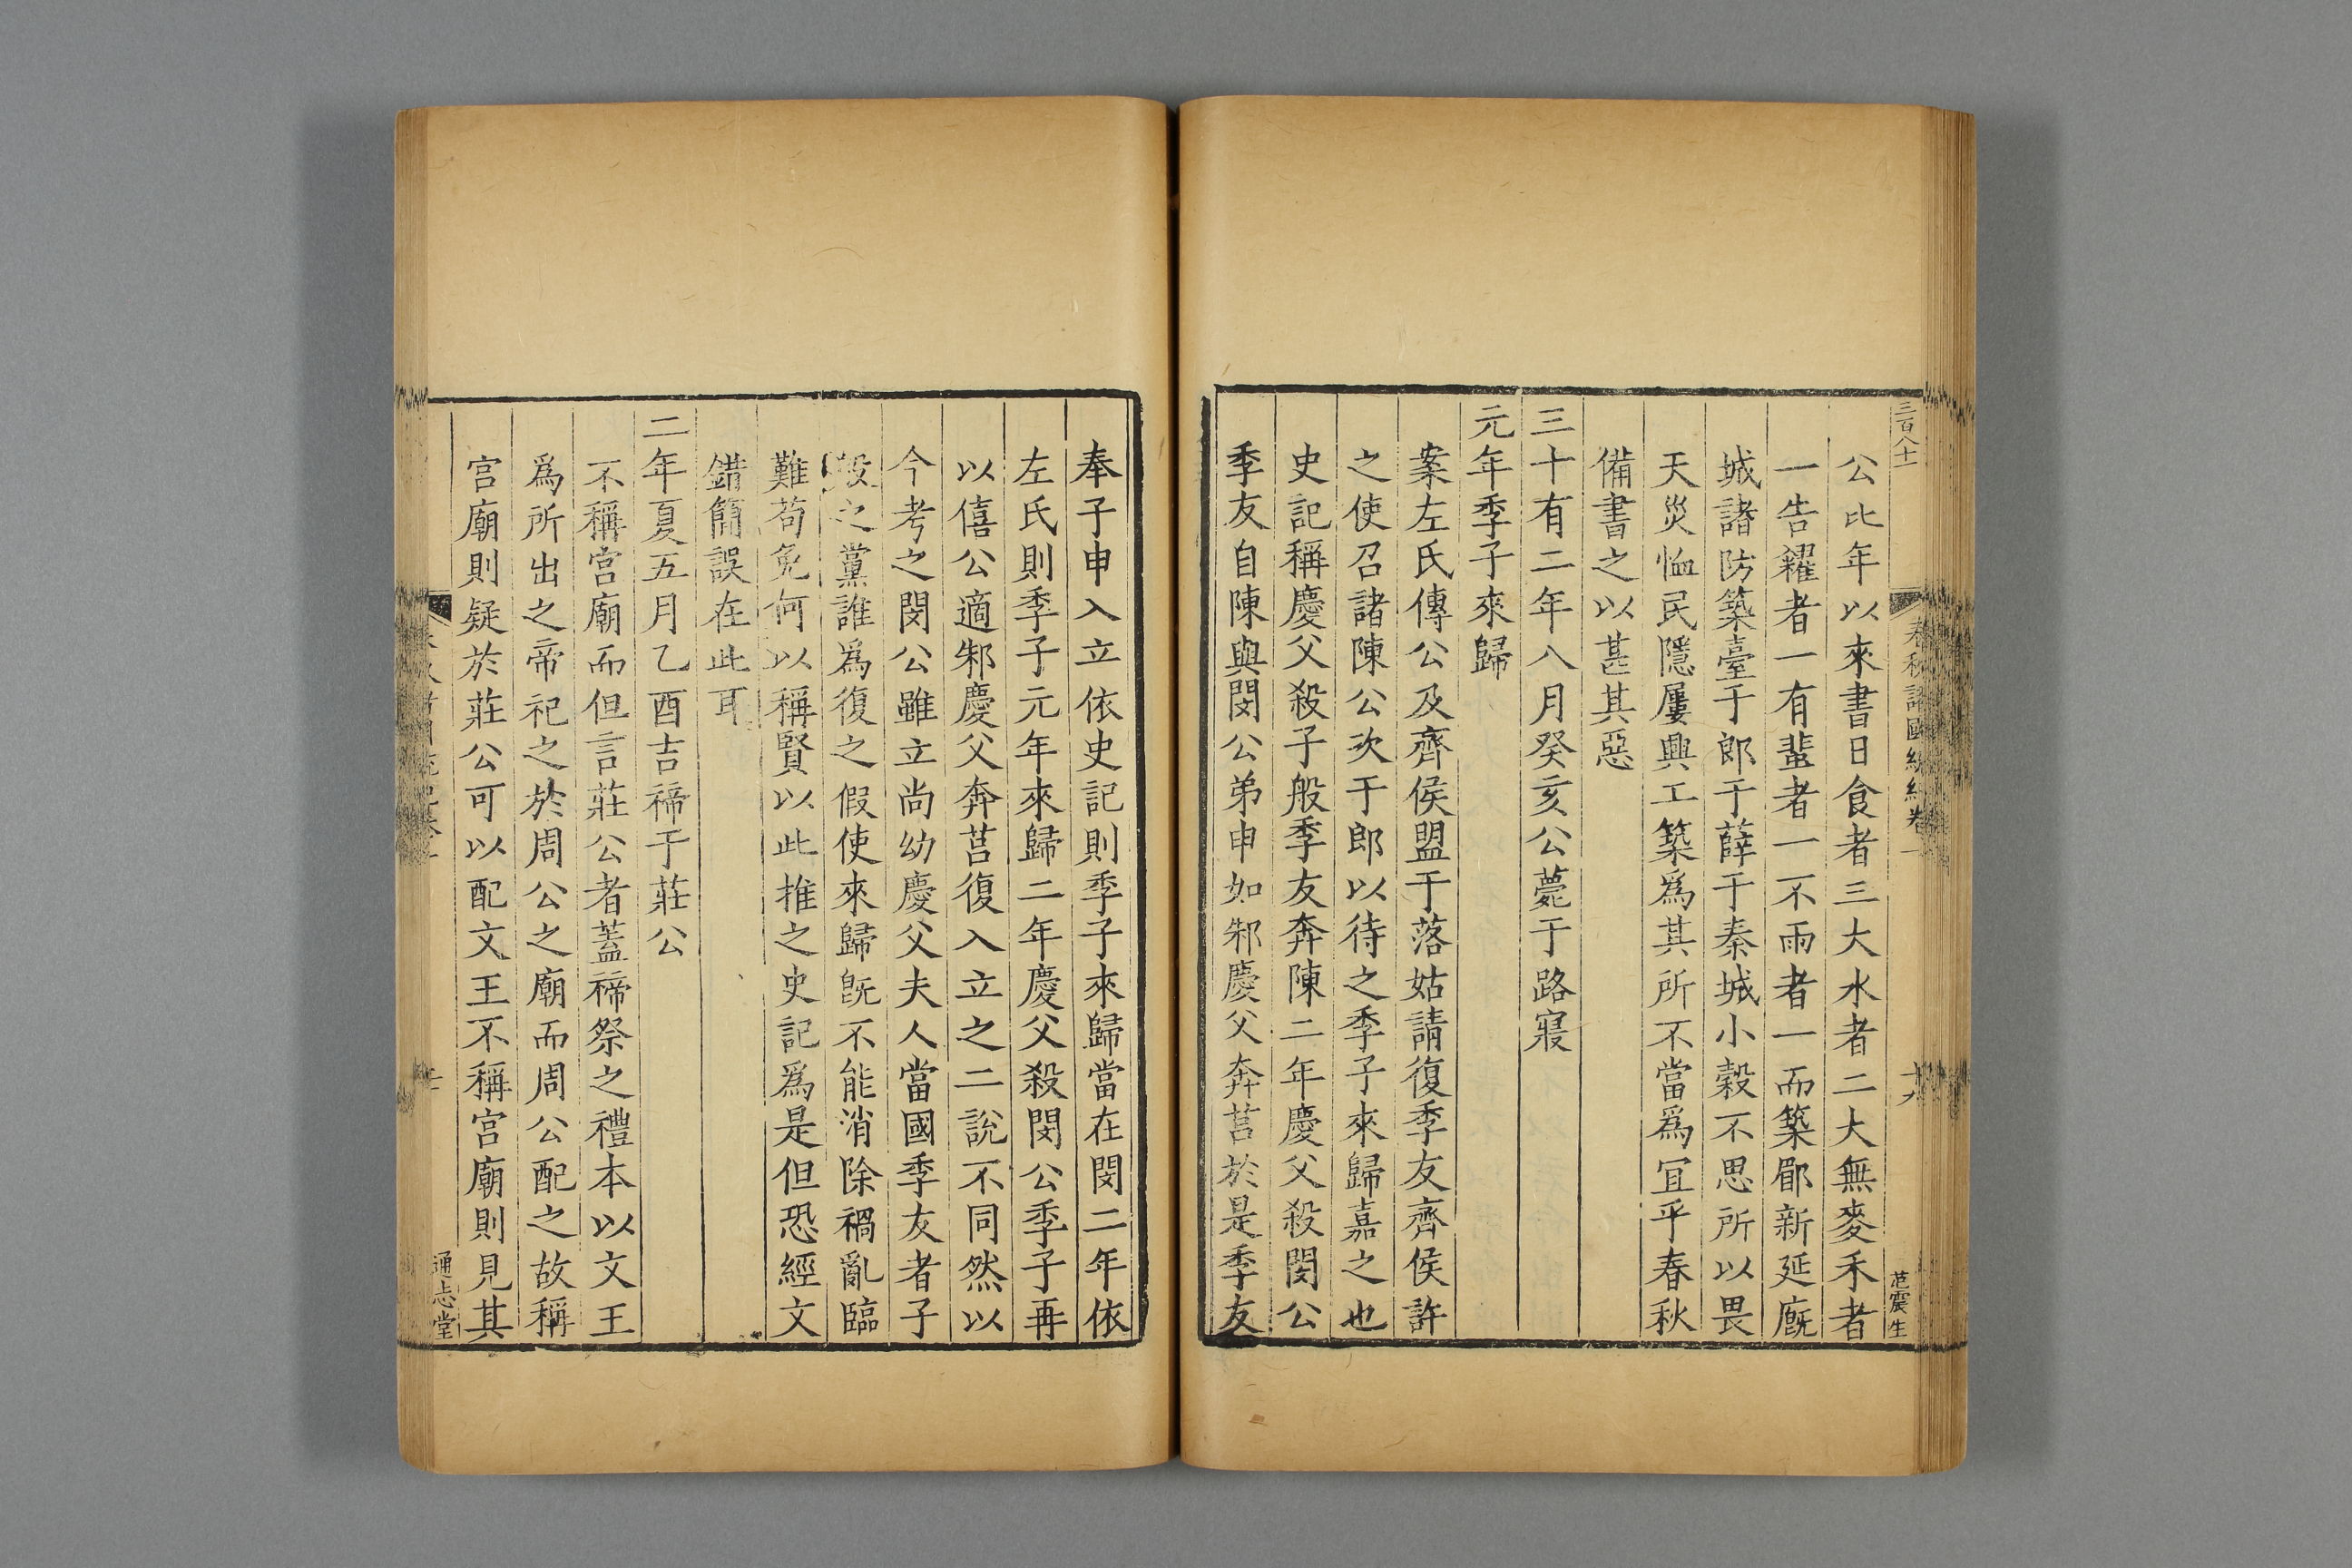 三百八十一
春秋諸國統紀卷一
十九
范震生
公比年以來書日食者三大水者二大無麥禾者
一告糴者一有蜚者一不雨者一而築郿新延廐
城諸防築臺于郎于薛于秦城小穀不思所以畏
天災恤民隱屢興工築爲其所不當爲宜乎春秋
備書之以甚其惡
三十有二年八月癸亥公薨于路寢
元年季子來歸
案左氏傳公及齊侯盟于落姑請復季友齊侯許
之使召諸陳公次于郎以待之季子來歸嘉之也
史記稱慶父殺子般季友奔陳二年慶父殺閔公
季友自陳與閔公弟申如邾慶父奔莒於是季友
奉子申入立依史記則季子來歸當在閔二年依
左氏則季子元年來歸二年慶父殺閔公季子再
以僖公適邾慶父奔莒復入立之二說不同然以
今考之閔公雖立尚幼慶父夫人當國季友者子
般之黨誰爲復之假使來歸旣不能消除禍亂臨
難苟免何以稱賢以此推之史記爲是但恐經文
錯簡誤在此耳
二年夏五月乙酉吉禘于莊公
不稱宮廟而但言莊公者蓋禘祭之禮本以文王
爲所出之帝祀之於周公之廟而周公配之故稱
宮廟則疑於莊公可以配文王不稱宮廟則見其
通志堂